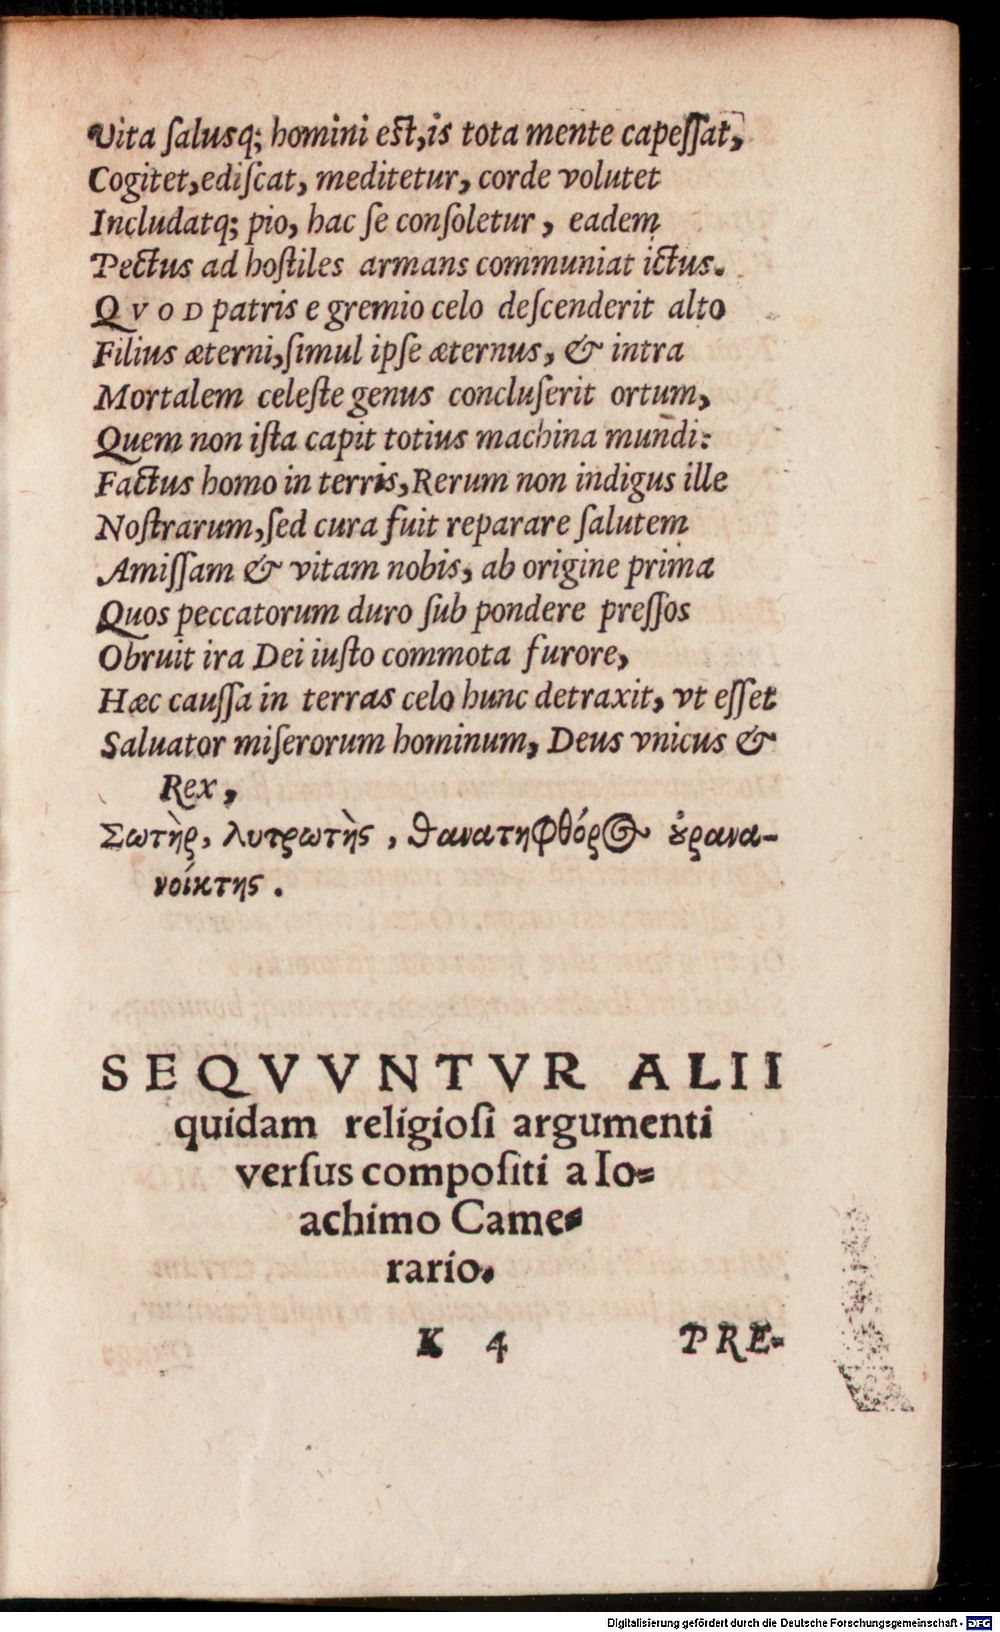 Vita ſalusq; homini eſt,is tota mente capeſſat,
Cogitet,ediſcat, meditetur, corde volutet
Includatq; pio, hac ſe conſoletur, eadem
Pectus ad hoſtiles armans communiat ictus.
QVOD patris e gremio celo deſcenderit alto
Filius æterni,ſimul ipſe æternus, & intra
Mortalem celeſte genus concluſerit ortum,
Quem non iſta capit totius machina mundi:
Factus homo in terris,Rerum non indigus ille
Noſtrarum,ſed cura fuit reparare ſalutem
Amiſſam & vitam nobis, ab origine prima
Quos peccatorum duro ſub pondere preſſos
Obruit ira Dei iuſto commota furore,
Hæc cauſſa in terras celo hunc detraxit, vt eſſet
Saluator miſerorum hominum, Deus vnicus &
Rex,
Σωτὴρ, λυτρωτὴς, θανατηφθόρος ȣ̓ρανα-
νοίκτης.
SEQVVNTVR ALII
quidam religioſi argumenti
verſus compoſiti a Io=
achimo Came=
rario.
K 4 PRE-
Digitalisierung gefördert durch die Deutsche Forschungsgemeinschaft - DFG